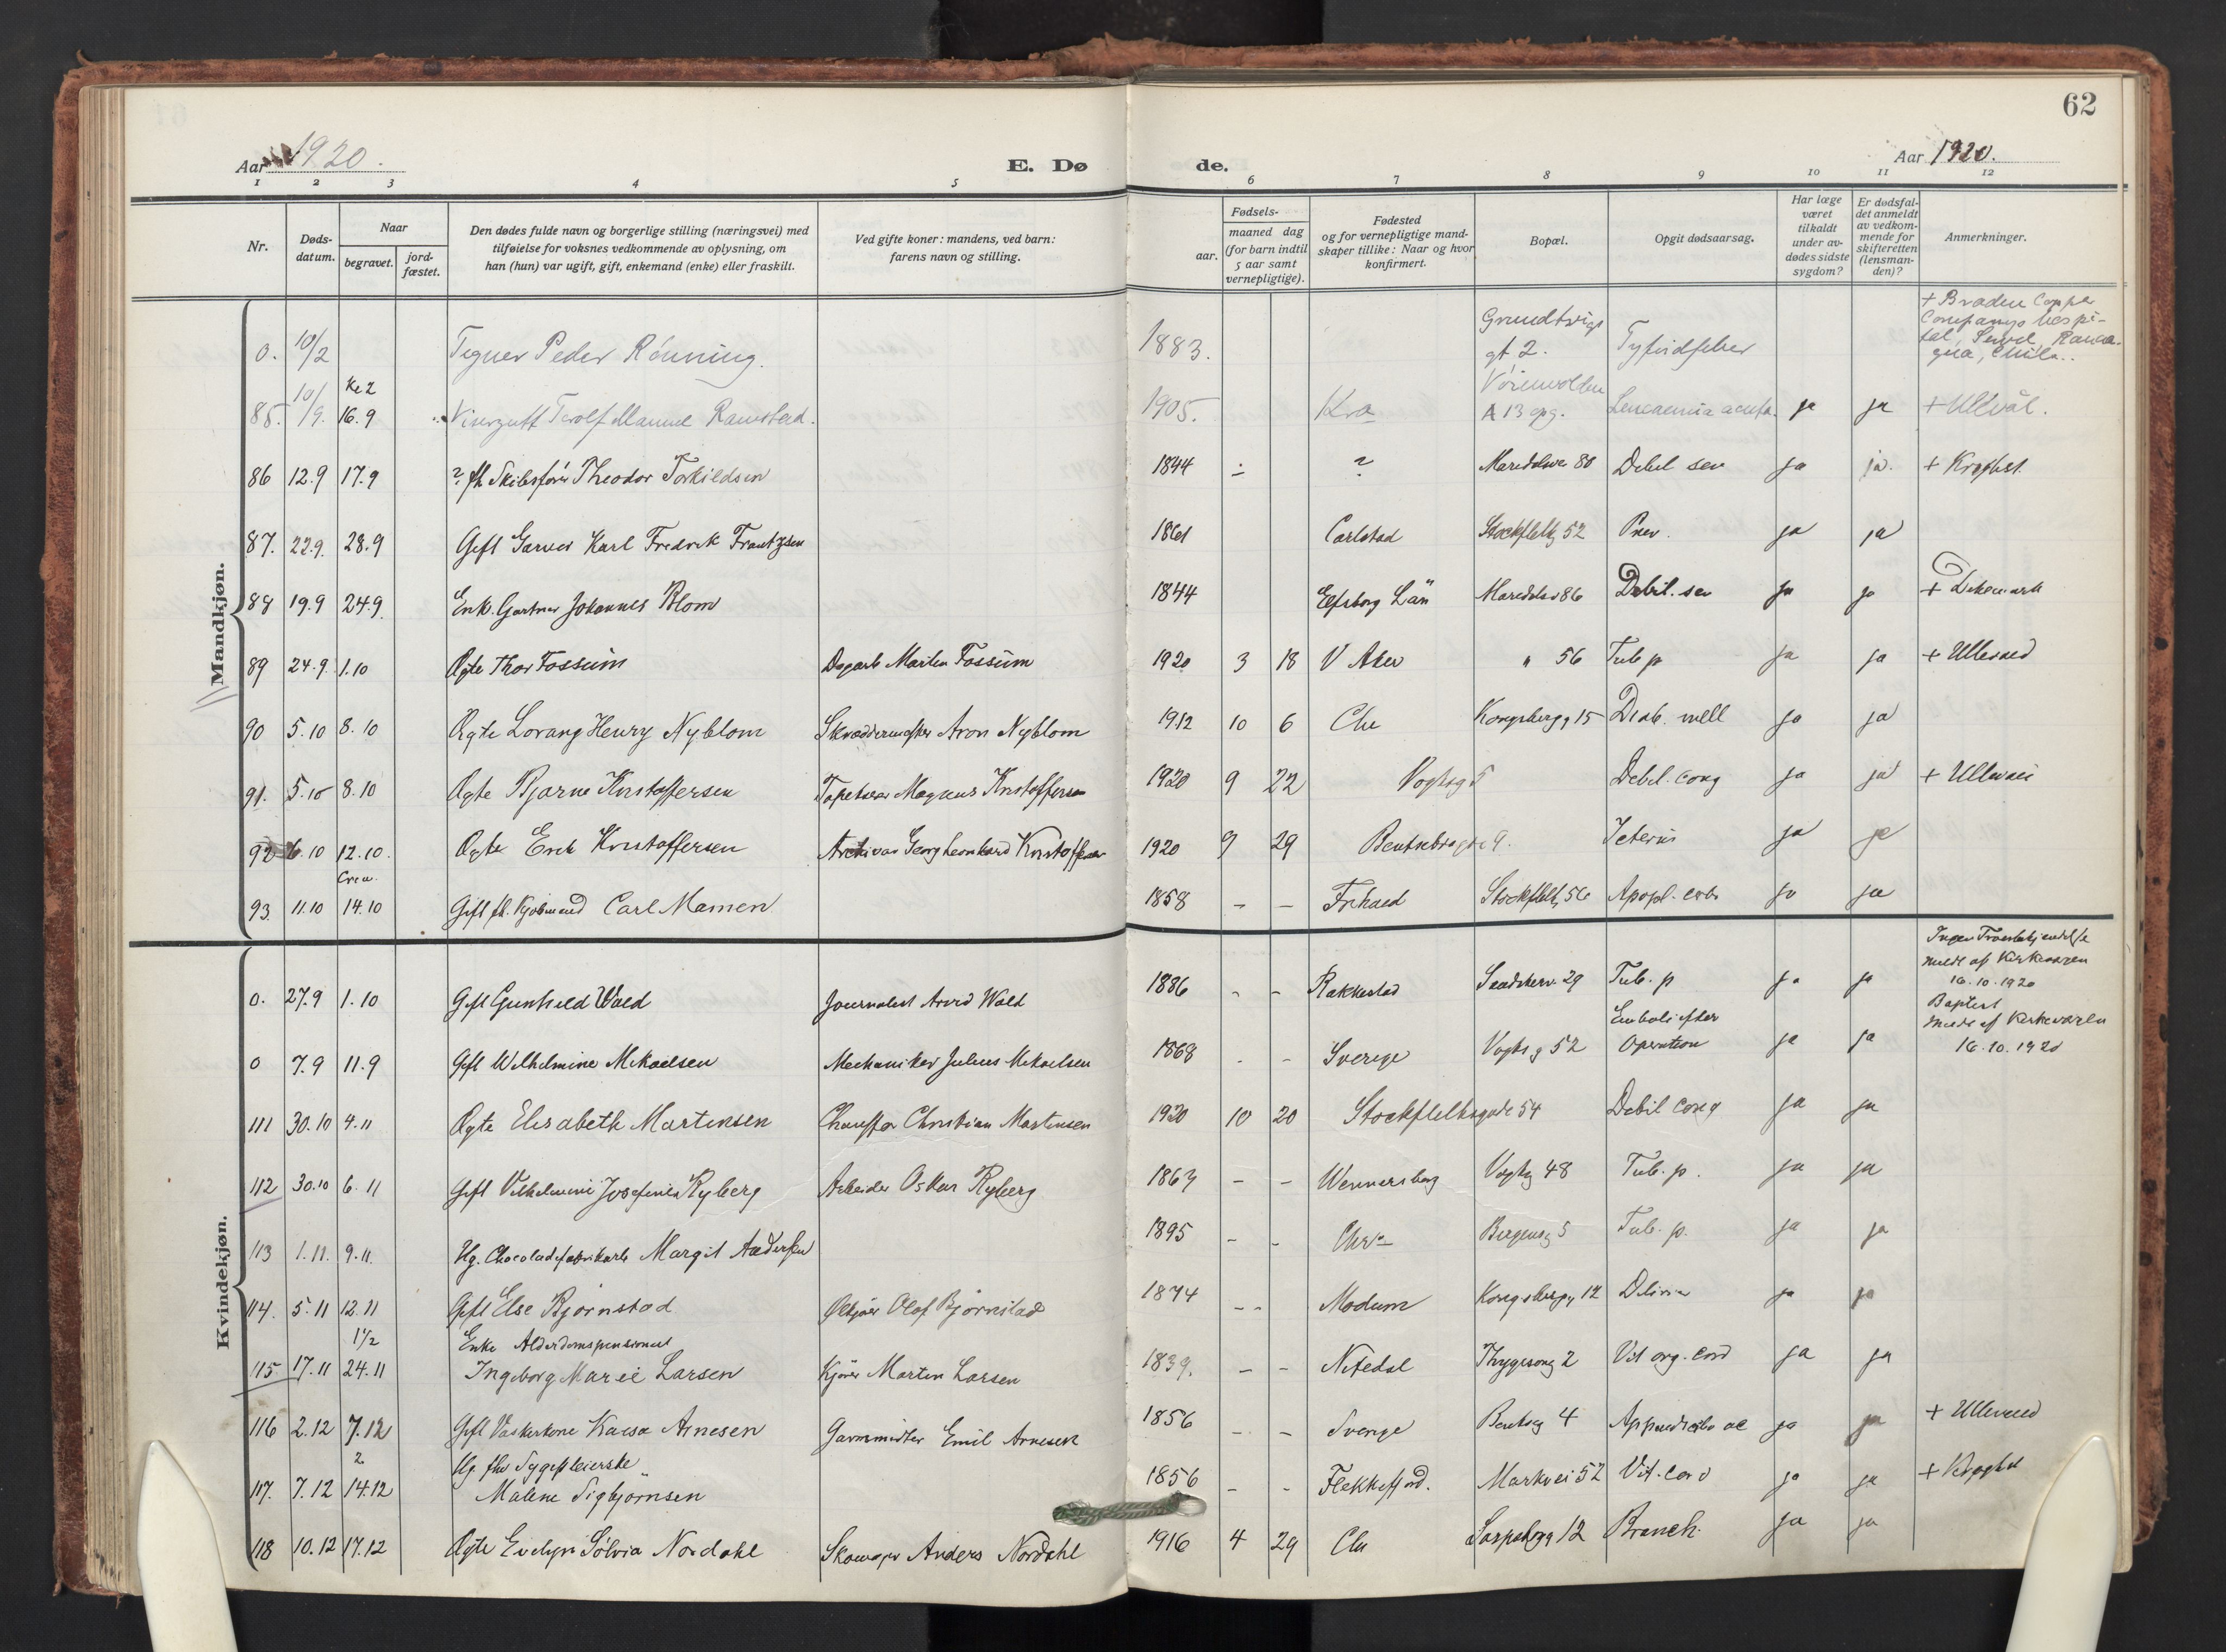 62
Aar 1920.
E. Dø
de.
Aar 1920.
1 2 3 4 5 6 7 8 9 10 11 12
Nr.
Døds-
datum.
Naar
begravet.
jord-
fæstet.
Den dødes fulde navn og borgerlige stilling (næringsvei) med
tilføielse for voksnes vedkommende av oplysning, om
han (hun) var ugift, gift, enkemand (enke) eller fraskilt.
Ved gifte koner: mandens, ved barn:
farens navn og stilling.
Fødsels-
aar.
maaned dag
(for barn indtil
5 aar samt
vernepligtige).
Fødested
og for vernepligtige mand-
skaper tillike: Naar og hvor
konfirmert.
Bopæl.
Opgit dødsaarsag.
Har læge
været
tilkaldt
under av-
dødes sidste
sygdom?
Er dødsfal-
det anmeldt
av vedkom-
mende for
skifteretten
(lensman-
den)?
Anmerkninger.
Mandkjøn.
0. 10/2 Tegner Peder Rönning. 1883. Grundtvigs gt 2. Tyfoidfeber + Braden Copper Companys hospi-
tal, Sewel, Ranca-
gua, Chile.
85. 10/9. Kl 2 16.9 Visergutt Manuel Ramstad. 1905. Kra A 13 opg. Leucaemia acuta. ja ja + Ullvål.
86 12.9 17.9 ? fh. Skibsfører Theodor Torkildsen 1844 ÷ ? Maridalsv 80 Debil sen ja ja. + Kroghst.
87. 22.9. 28.9 Gift Garver Karl Fredrik Frantzsen 1861 Carlstad Stockfletg 52 Pnev. ja ja
88 19.9 24.9. Enk. Gartner Johannes Blom 1844 Elfsborg Län Maridalsv 86 Debil. sen ja ja + Dikemark
89 24.9. 1.10 Ægte Thor Fossum Dagarb Martin Fossum 1920 3 18 V Aker " 56 Tub p ja ja + Ullevaal
90 5.10 8.10 Ægte Lorang Henry Nyblom Skræddermester Aron Nyblom 1912 10 6 Chr Kongsbergg 15 Diab. mell ja ja
91. 5.10 8.10 Ægte Bjarne Kristoffersen Tapetserer Magnus Kristoffersen 1920 9 22 Vogtsg 5 Debil. cong ja ja + Ullevaal
92 6.10 12.10. Ægte Erik Kristoffersen Arkivar Georg Leonhard Kristoffersen 1920 9 29 Bentsebrogt 9. Icterus ja ja
93. 11.10 Crem. 14.10 Gift fh. Kjøbmand Carl Mamen 1858 - - Frhald Stockfletg 56 Apopl. cerb ja ja
Kvindekjøn.
0. 27.9 1.10 Gift Gunhild Wold Journalist Arvid Wold 1886 - - Rakkestad 29 Tub. p ja ja Ingen Troesbekjendelse
meldt af Kirkeværgen
16.10.1920
0 7.9 11.9 Gift Wilhelmine Mikaelsen Mechaniker Julius Mikaelsen 1868 - - Sverige Vogtsg 52 Emboli efter
Operation ja ja Baptist
meldt af Kirkeværgen
16.10.1920
111 30.10 4.11 Ægte Elisabeth Martinsen Chauffør Christian Martinsen 1920 10 20 Stockflethsgade 54 Debil cong ja ja
112 30.10 6.11 Gift Vilhelmine Josefine Ryberg Arbeider Oskar Ryberg 1863 - - Wennersborg Vogtsg 48 Tub. p. ja ja
113 1.11. 9.11. Ug. Chocoladefabrikarb Margit Andersen 1895 - - Chra Bergensg 5 Tub. p. ja ja
114. 5.11 12.11 Gift Else Bjørnstad Ølkjører Olaf Bjørnstad 1874 - - Modum Kongsbergg 12 ja ja
115 17.11 1 1/2 24.11 Enke Alderdomspensionist
Ingeborg Marie Larsen Kjører Martin Larsen 1839. - - Nitedal Thygesensg 2 Vit org. cord ja ja
116 2.12 7.12 Gift Vaskerkone Kaisa Arnesen Emil Arnesen 1856 - - Sverige Bentseg 4 ja ja + Ullevaal
117. 7.12 2 14.12 Ug. fhv Sygepleierske
Malene Sigbjørnsen 1856 - - Flekkefjord. Markvei 52 Vit. cord ja ja + Kroghst
118 10.12 17.12 Ægte Evelyn Sølvia Nordahl Skomager Anders Nordahl 1916 4 29 Chr Sarpsborgg 12 Bronch. ja ja